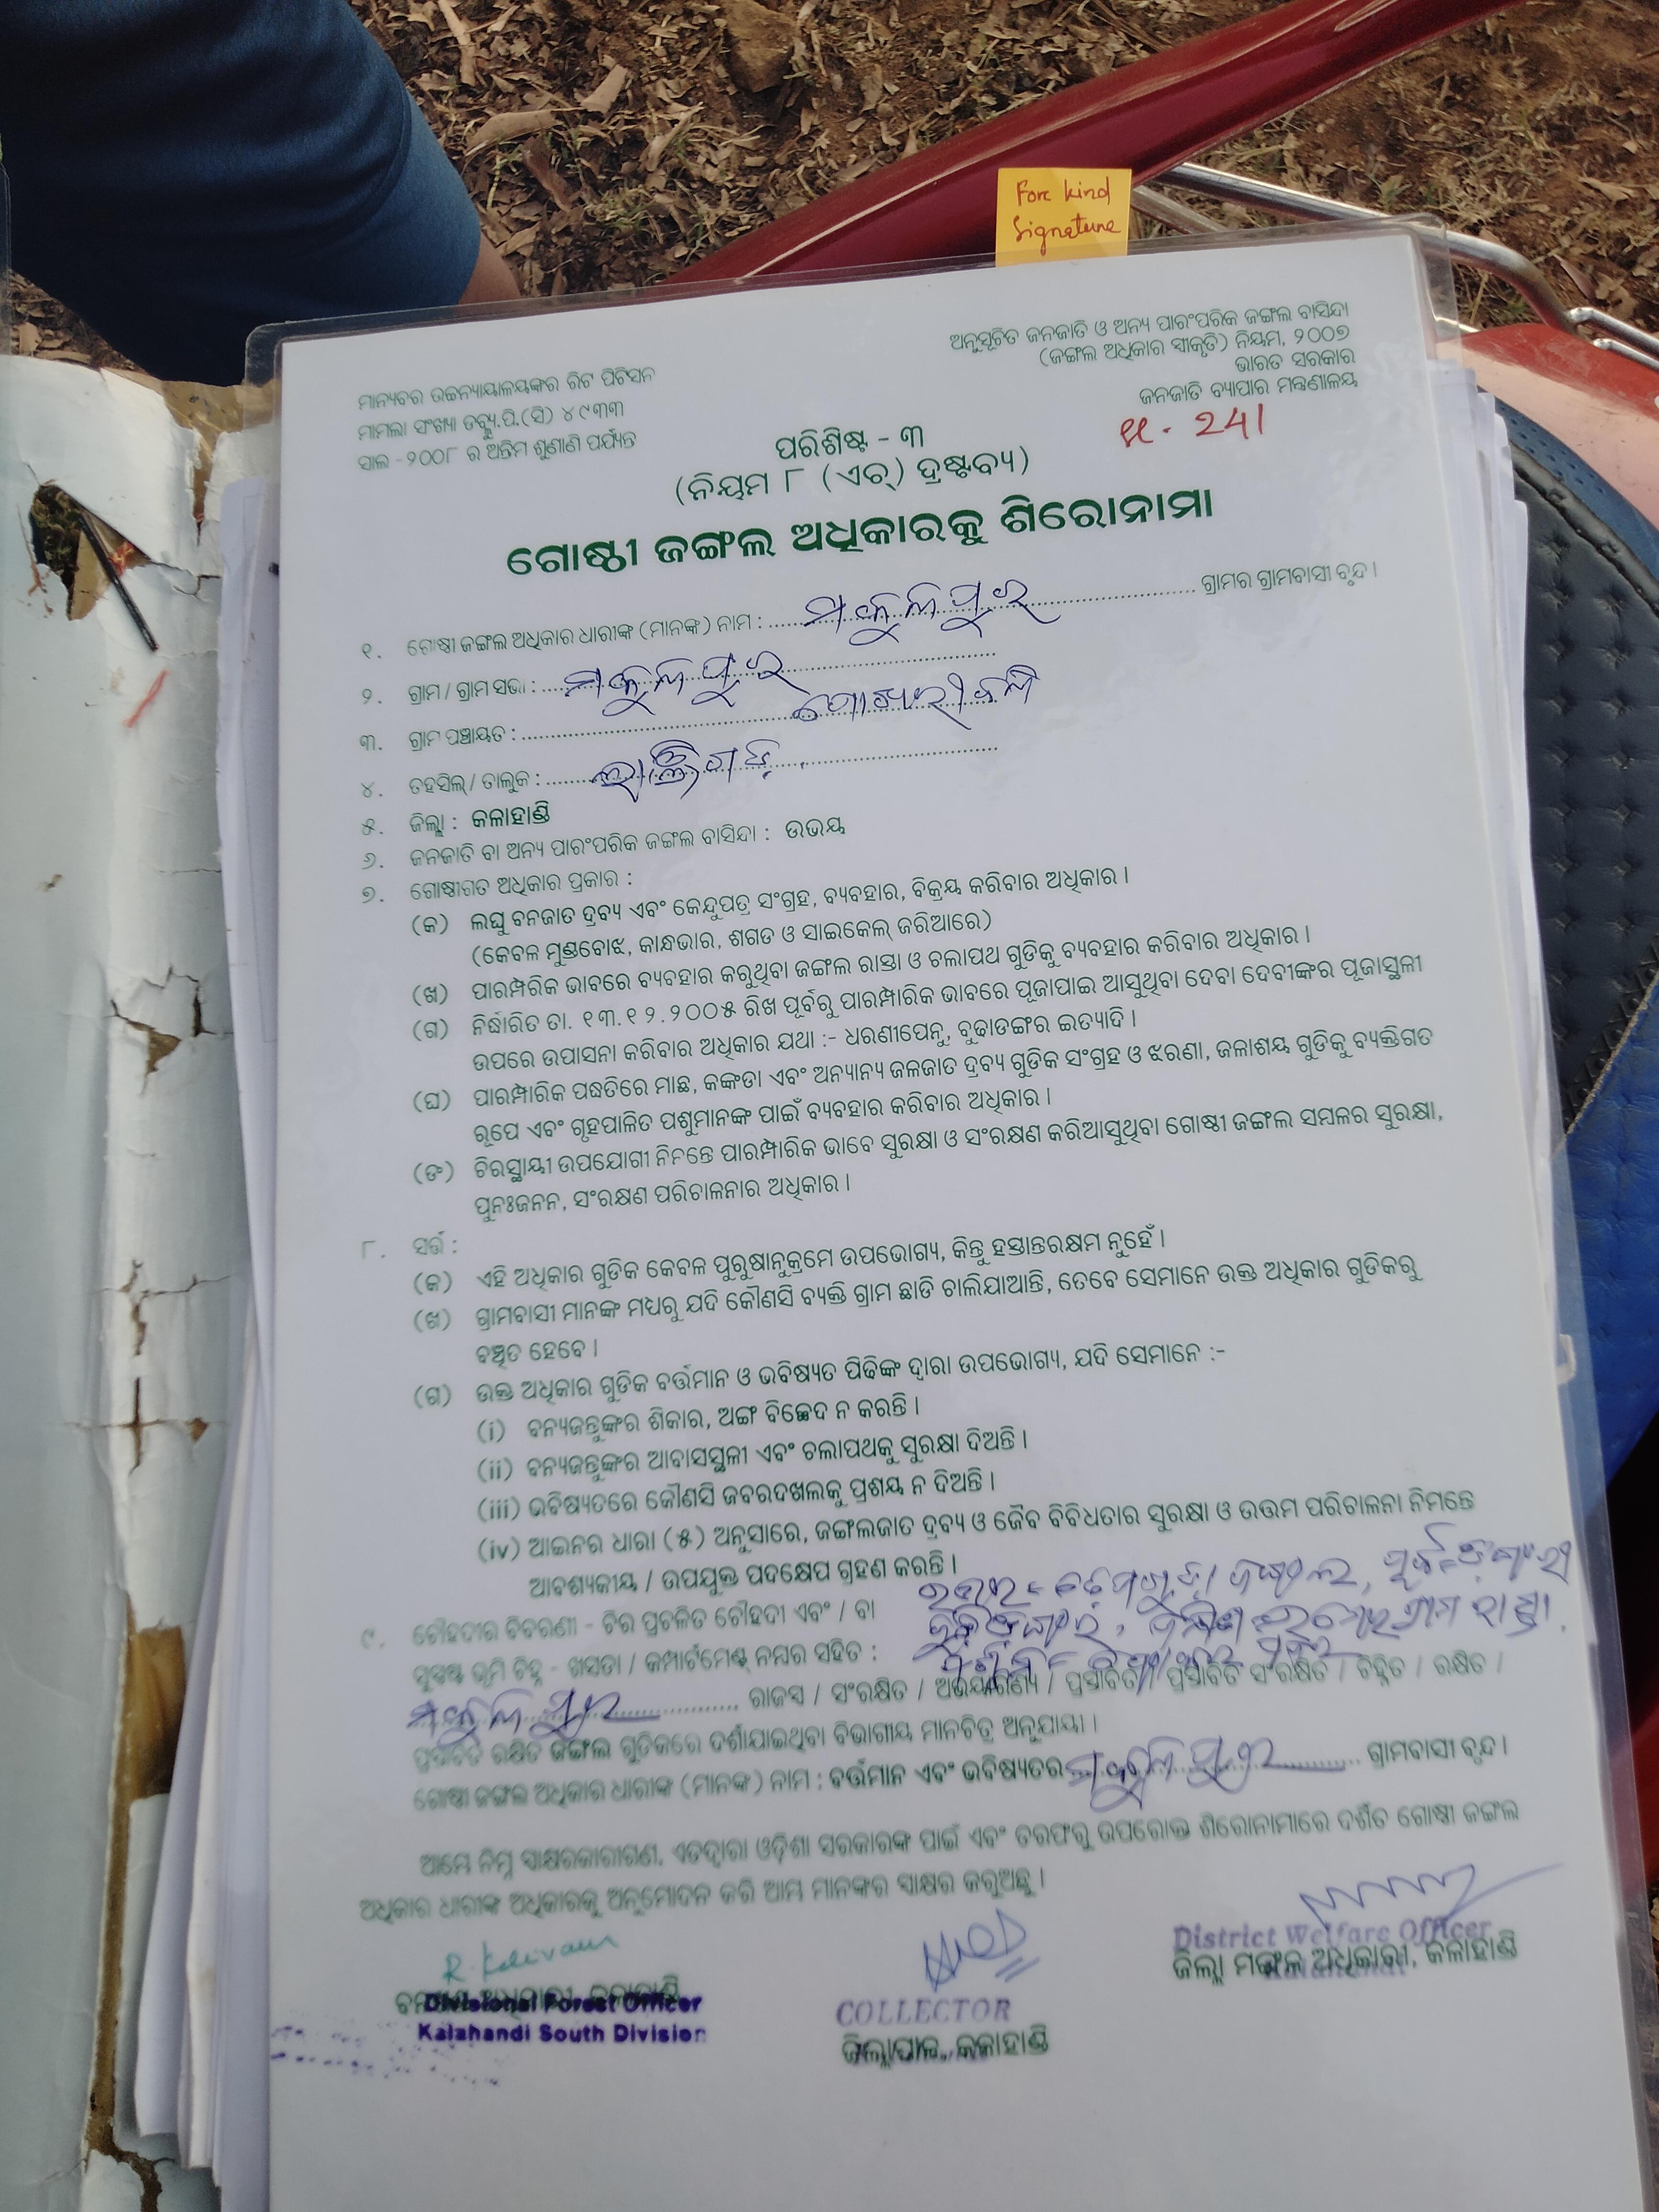 For kind
Signature
ଅନୁସୂଚିତ ଜନଜାତି ଓ ଅନ୍ୟ ପାରଂପରିକ ଜଙ୍ଗଲ ବାସିନ୍ଦା
(ଜଙ୍ଗଲ ଅଧିକାର ସ୍ୱୀକୃତି) ନିୟମ, ୨୦୦୭
ଭାରତ ସରକାର
ଜନଜାତି ବ୍ୟାପାର ମନ୍ତ୍ରଣାଳୟ
ମାନ୍ୟବର ଉଚ୍ଚନ୍ୟାୟାଳୟଙ୍କର ରିଟ ପିଟିସନ
ମାମଲା ସଂଖ୍ୟା ଡବ୍ଲ୍ୟୁ.ପି.(ସି) ୪୯୩୩
ସାଲ -୨୦୦୮ ର ଅନ୍ତିମ ଶୁଣାଣି ପର୍ଯ୍ୟନ୍ତ
241
ପରିଶିଷ୍ଟ - ୩
(ନିୟମ ୮ (ଏଚ୍) ଦ୍ରଷ୍ଟବ୍ୟ)
ଗୋଷ୍ଠୀ ଜଙ୍ଗଲ ଅଧିକାରକୁ ଶିରୋନାମା
୧. ଗୋଷ୍ଠୀ ଜଙ୍ଗଲ ଅଧିକାର ଧାରୀଙ୍କ (ମାନଙ୍କ) ନାମ : ମକୁଲପୁର ଗ୍ରାମର ଗ୍ରାମବାସୀ ବୃନ୍ଦ ।
୨. ଗ୍ରାମ / ଗ୍ରାମ ସଭା : ମକୁଲପୁର
୩. ଗ୍ରାମ ପଞ୍ଚାୟତ :
୪. ତହସିଲ୍ / ତାଲୁକ : ଲାଞ୍ଜିଗଡ଼
୫. ଜିଲ୍ଲା : କଳାହାଣ୍ଡି
୬. ଜନଜାତି ବା ଅନ୍ୟ ପାରଂପରିକ ଜଙ୍ଗଲ ବାସିନ୍ଦା : ଉଭୟ
୭. ଗୋଷ୍ଠୀଗତ ଅଧିକାର ପ୍ରକାର :
(କ) ଲଘୁ ବନଜାତ ଦ୍ରବ୍ୟ ଏବଂ କେନ୍ଦୁପତ୍ର ସଂଗ୍ରହ, ବ୍ୟବହାର, ବିକ୍ରୟ କରିବାର ଅଧିକାର ।
(କେବଳ ମୁଣ୍ଡବୋଝ, କାନ୍ଧଭାର, ଶଗଡ ଓ ସାଇକେଲ୍ ଜରିଆରେ)
(ଖ) ପାରମ୍ପରିକ ଭାବରେ ବ୍ୟବହାର କରୁଥିବା ଜଙ୍ଗଲ ରାସ୍ତା ଓ ଚଲାପଥ ଗୁଡିକୁ ବ୍ୟବହାର କରିବାର ଅଧିକାର ।
(ଗ) ନିର୍ଦ୍ଧାରିତ ତା. ୧୩.୧୨.୨୦୦୫ ରିଖ ପୂର୍ବରୁ ପାରମ୍ପାରିକ ଭାବରେ ପୂଜାପାଇ ଆସୁଥିବା ଦେବା ଦେବୀଙ୍କର ପୂଜାସ୍ଥଳୀ
ଉପରେ ଉପାସନା କରିବାର ଅଧିକାର ଯଥା :- ଧରଣୀପେନୁ, ବୁଢାଡଙ୍ଗର ଇତ୍ୟାଦି ।
(ଘ) ପାରମ୍ପାରିକ ପଦ୍ଧତିରେ ମାଛ, କଙ୍କଡା ଏବଂ ଅନ୍ୟାନ୍ୟ ଜଳଜାତ ଦ୍ରବ୍ୟ ଗୁଡିକ ସଂଗ୍ରହ ଓ ଝରଣା, ଜଳାଶୟ ଗୁଡିକୁ ବ୍ୟକ୍ତିଗତ
ରୂପେ ଏବଂ ଗୃହପାଳିତ ପଶୁମାନଙ୍କ ପାଇଁ ବ୍ୟବହାର କରିବାର ଅଧିକାର ।
(ଙ) ଚିରସ୍ଥାୟୀ ଉପଯୋଗୀ ନିମନ୍ତେ ପାରମ୍ପାରିକ ଭାବେ ସୁରକ୍ଷା ଓ ସଂରକ୍ଷଣ କରିଆସୁଥିବା ଗୋଷ୍ଠୀ ଜଙ୍ଗଲ ସମ୍ବଳର ସୁରକ୍ଷା,
ପୁନଃଜନନ, ସଂରକ୍ଷଣ ପରିଚାଳନାର ଅଧିକାର ।
୮. ସର୍ତ୍ତ :
(କ) ଏହି ଅଧିକାର ଗୁଡିକ କେବଳ ପୁରୁଷାନୁକ୍ରମେ ଉପଭୋଗ୍ୟ, କିନ୍ତୁ ହସ୍ତାନ୍ତରକ୍ଷମ ନୁହେଁ ।
(ଖ) ଗ୍ରାମବାସୀ ମାନଙ୍କ ମଧ୍ୟରୁ ଯଦି କୌଣସି ବ୍ୟକ୍ତି ଗ୍ରାମ ଛାଡି ଚାଲିଯାଆନ୍ତି, ତେବେ ସେମାନେ ଉକ୍ତ ଅଧିକାର ଗୁଡିକରୁ
ବଞ୍ଚିତ ହେବେ ।
(ଗ) ଉକ୍ତ ଅଧିକାର ଗୁଡିକ ବର୍ତ୍ତମାନ ଓ ଭବିଷ୍ୟତ ପିଢିଙ୍କ ଦ୍ୱାରା ଉପଭୋଗ୍ୟ, ଯଦି ସେମାନେ :-
(i) ବନ୍ୟଜନ୍ତୁଙ୍କର ଶିକାର, ଅଙ୍ଗ ବିଚ୍ଛେଦ ନ କରନ୍ତି ।
(ii) ବନ୍ୟଜନ୍ତୁଙ୍କର ଆବାସସ୍ଥଳୀ ଏବଂ ଚଲାପଥକୁ ସୁରକ୍ଷା ଦିଅନ୍ତି ।
(iii) ଭବିଷ୍ୟତରେ କୌଣସି ଜବରଦଖଲକୁ ପ୍ରଶୟ ନ ଦିଅନ୍ତି ।
(iv) ଆଇନର ଧାରା (୫) ଅନୁସାରେ, ଜଙ୍ଗଲଜାତ ଦ୍ରବ୍ୟ ଓ ଜୈବ ବିବିଧତାର ସୁରକ୍ଷା ଓ ଉତ୍ତମ ପରିଚାଳନା ନିମନ୍ତେ
ଆବଶ୍ୟକୀୟ / ଉପଯୁକ୍ତ ପଦକ୍ଷେପ ଗ୍ରହଣ କରନ୍ତି ।
୯. ଚୌହଦୀର ବିବରଣୀ - ଚିର ପ୍ରଚଳିତ ଚୌହଦୀ ଏବଂ / ବା
ସୁସ୍ପଷ୍ଟ ଭୂମି ଚିହ୍ନ - ଖସଡା / କମ୍ପାର୍ଟମେଣ୍ଟ ନମ୍ବର ସହିତ :
ମକୁଲପୁର ରାଜସ୍ୱ / ସଂରକ୍ଷିତ / ଅଭୟାରଣ୍ୟ / ପ୍ରସ୍ତାବିତ / ପ୍ରସ୍ତାବିତ ସଂରକ୍ଷିତ / ଚିହ୍ନିତ / ରକ୍ଷିତ /
ପ୍ରସ୍ତାବିତ ରକ୍ଷିତ ଜଙ୍ଗଲ ଗୁଡିକରେ ଦର୍ଶାଯାଇଥିବା ବିଭାଗୀୟ ମାନଚିତ୍ର ଅନୁଯାୟୀ ।
ଗୋଷ୍ଠୀ ଜଙ୍ଗଲ ଅଧିକାର ଧାରୀଙ୍କ (ମାନଙ୍କ) ନାମ : ବର୍ତ୍ତମାନ ଏବଂ ଭବିଷ୍ୟତର ମକୁଲପୁର ଗ୍ରାମବାସୀ ବୃନ୍ଦ ।
ଆମ୍ଭେ ନିମ୍ନ ସ୍ୱାକ୍ଷରକାରୀଗଣ, ଏତଦ୍ୱାରା ଓଡ଼ିଶା ସରକାରଙ୍କ ପାଇଁ ଏବଂ ତରଫରୁ ଉପରୋକ୍ତ ଶିରୋନାମାରେ ଦର୍ଶିତ ଗୋଷ୍ଠୀ ଜଙ୍ଗଲ
ଅଧିକାର ଧାରୀଙ୍କ ଅଧିକାରକୁ ଅନୁମୋଦନ କରି ଆମ୍ଭ ମାନଙ୍କର ସ୍ୱାକ୍ଷର କରୁଅଛୁ ।
District Welfare Officer
ଜିଲ୍ଲା ମଙ୍ଗଳ ଅଧିକାରୀ, କଳାହାଣ୍ଡି
Divisional Forest Officer
Kalahandi South Division
COLLECTOR
ଜିଲ୍ଲାପାଳ, କଳାହାଣ୍ଡି